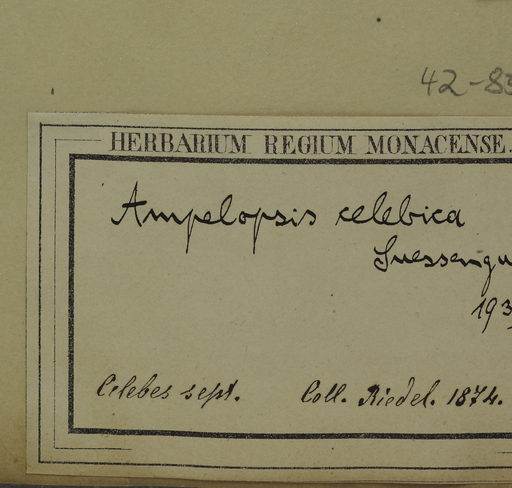 42-83
HERBARIUM REGIUM MONACENSE.
Ampelopsis celebica
Suessengu
193
Celebes sept. Coll. Riedel. 1874.